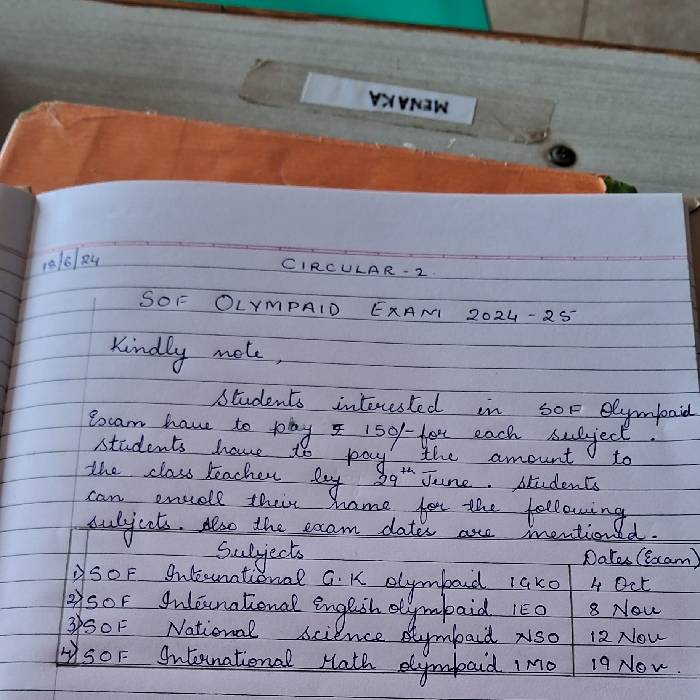 MENAKA
18/6/24 CIRCULAR-2.
SOF OLYMPAID EXAM 2024-25
Kindly note,
Students interested in SOF Olympaid
Exam have to pay ₹ 150/- for each subject.
students have to pay the amount to
the class teacher by 29th June. students
can enroll their name for the following
subjects. Also the exam dates are mentioned.
Subjects Dates (Exam)
1) SOF International G.K olympaid IGKO 4 Oct
2) SOF International English olympaid IEO 8 Nov
3) SOF National science olympaid NSO 12 Nov
4) SOF International Math olympaid IMO 19 Nov.